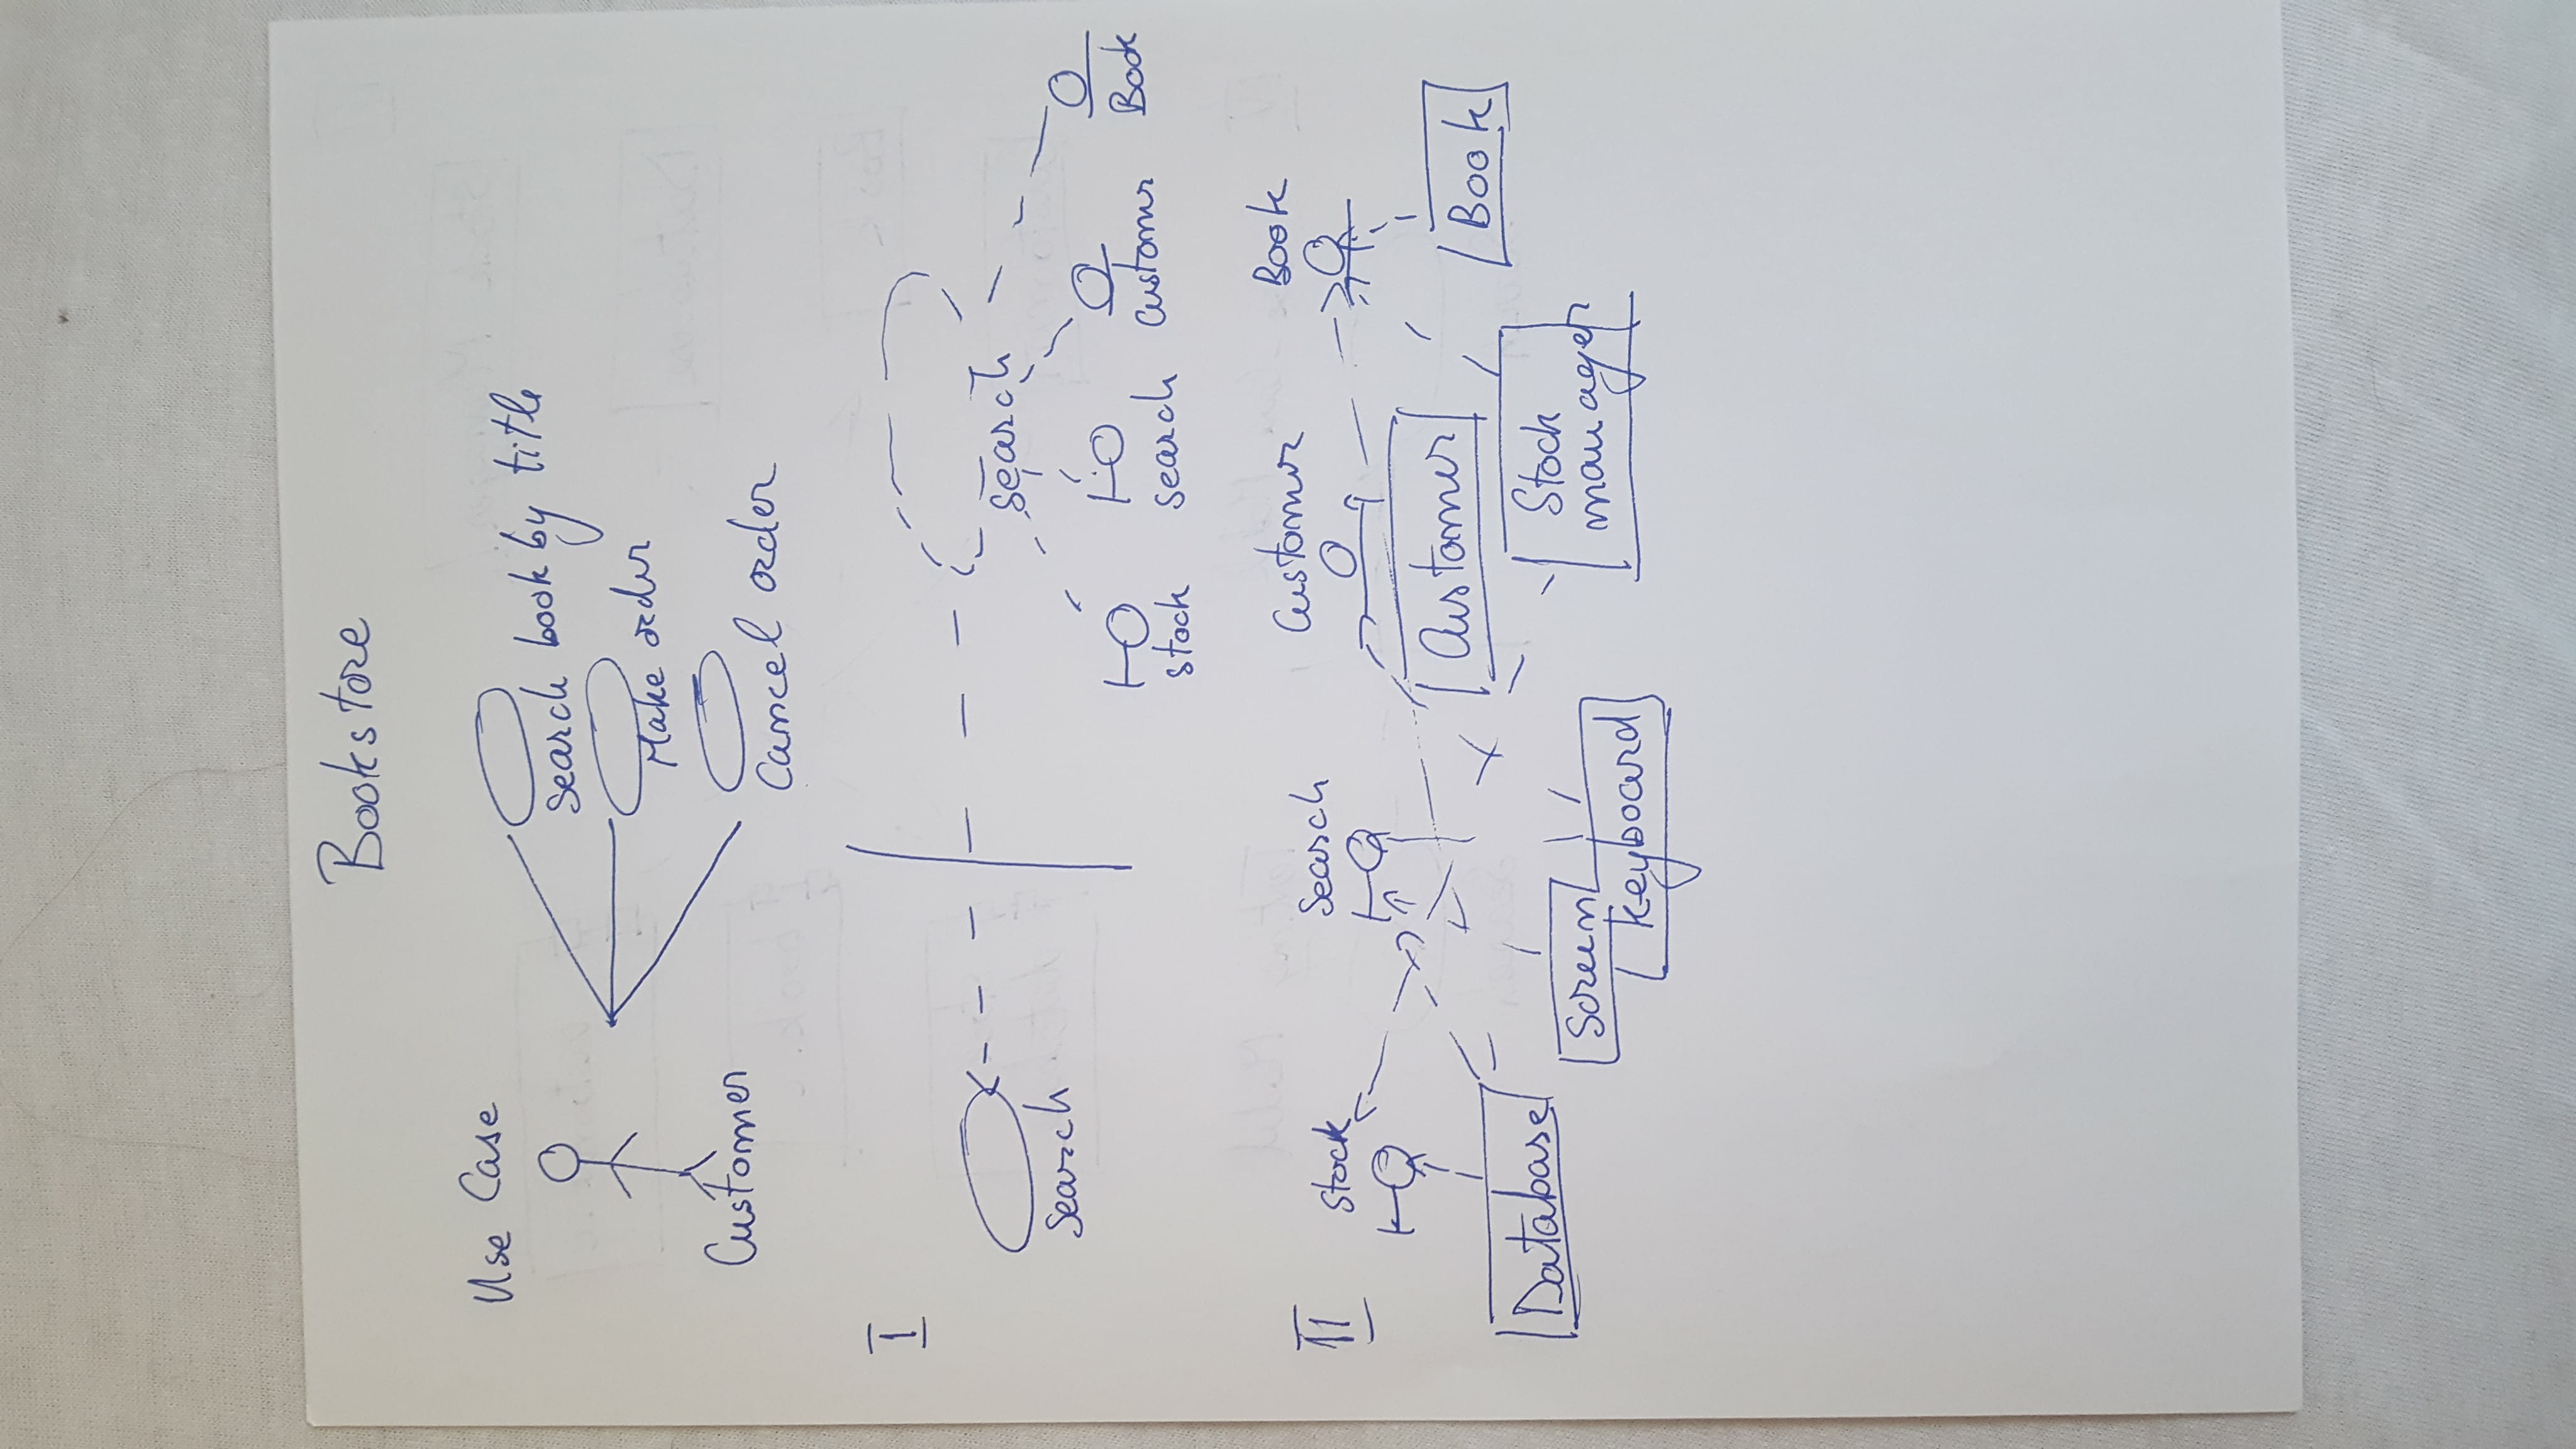 Bookstore
Use Case
Search book by title
Make order
Cancel order
Customer
I
Search
search
stock
search
Customr
Book
II
Stock
Search
Customr
Book
Database
Screen
keyboard
Customer
Stock
manager
Book